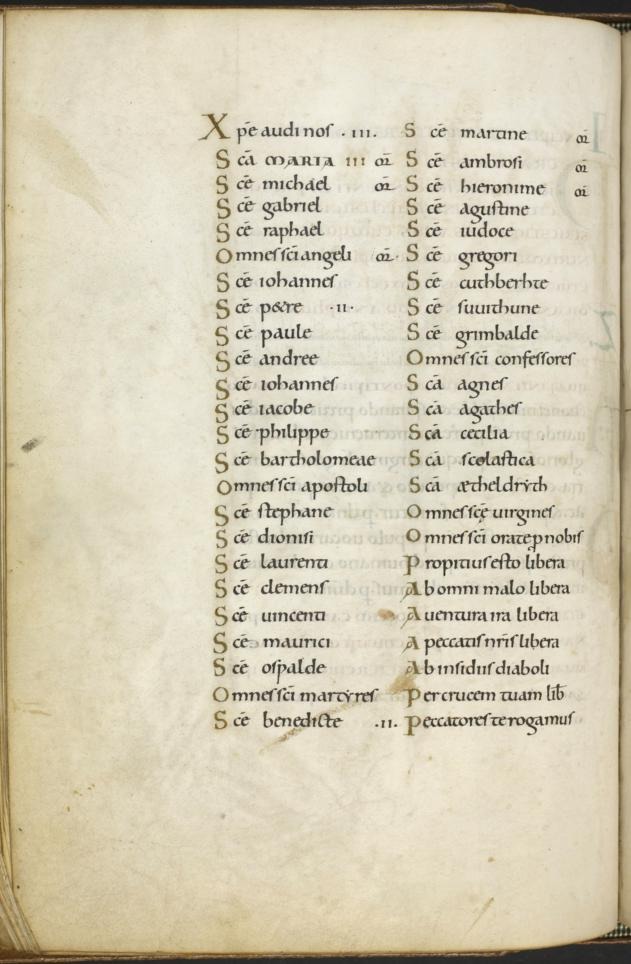 Xp̄e audi nos · III ·
Sc̄a MARIA III or̄
Sc̄e michael or̄
Sc̄e gabriel
Sc̄e raphael
Omnes sc̄i angeli or̄ ·
Sc̄e iohannes
Sc̄e p&re · II ·
Sc̄e paule
Sc̄e andree
Sc̄e iohannes
Sc̄e iacobe
Sc̄e philippe
Sc̄e bartholomeae
Omnes sc̄i apostoli
Sc̄e stephane
Sc̄e dionisi
Sc̄e laurenti
Sc̄e clemens
Sc̄e uincenti
Sc̄e maurici
Sc̄e ospalde
Omnes sc̄i martẏres
Sc̄e benedicte · II ·
Sc̄e martine or̄
Sc̄e ambrosi or̄
Sc̄e hieronime or̄
Sc̄e agustine
Sc̄e iudoce
Sc̄e gregori
Sc̄e cuthberhte
Sc̄e suuithune
Sc̄e grimbalde
Omnes sc̄i confessores
Sc̄a agnes
Sc̄a agathes
Sc̄a cecilia
Sc̄a scolastica
Sc̄a ætheldrẏth
Omnes sc̄ę uirgines
Omnes sc̄i orate p̱ nobis
Propitius esto libera
Ab omni malo libera
A uentura ira libera
A peccatis nr̄is libera
Ab insidiis diaboli
Per crucem tuam lib̄
Peccatores te rogamus